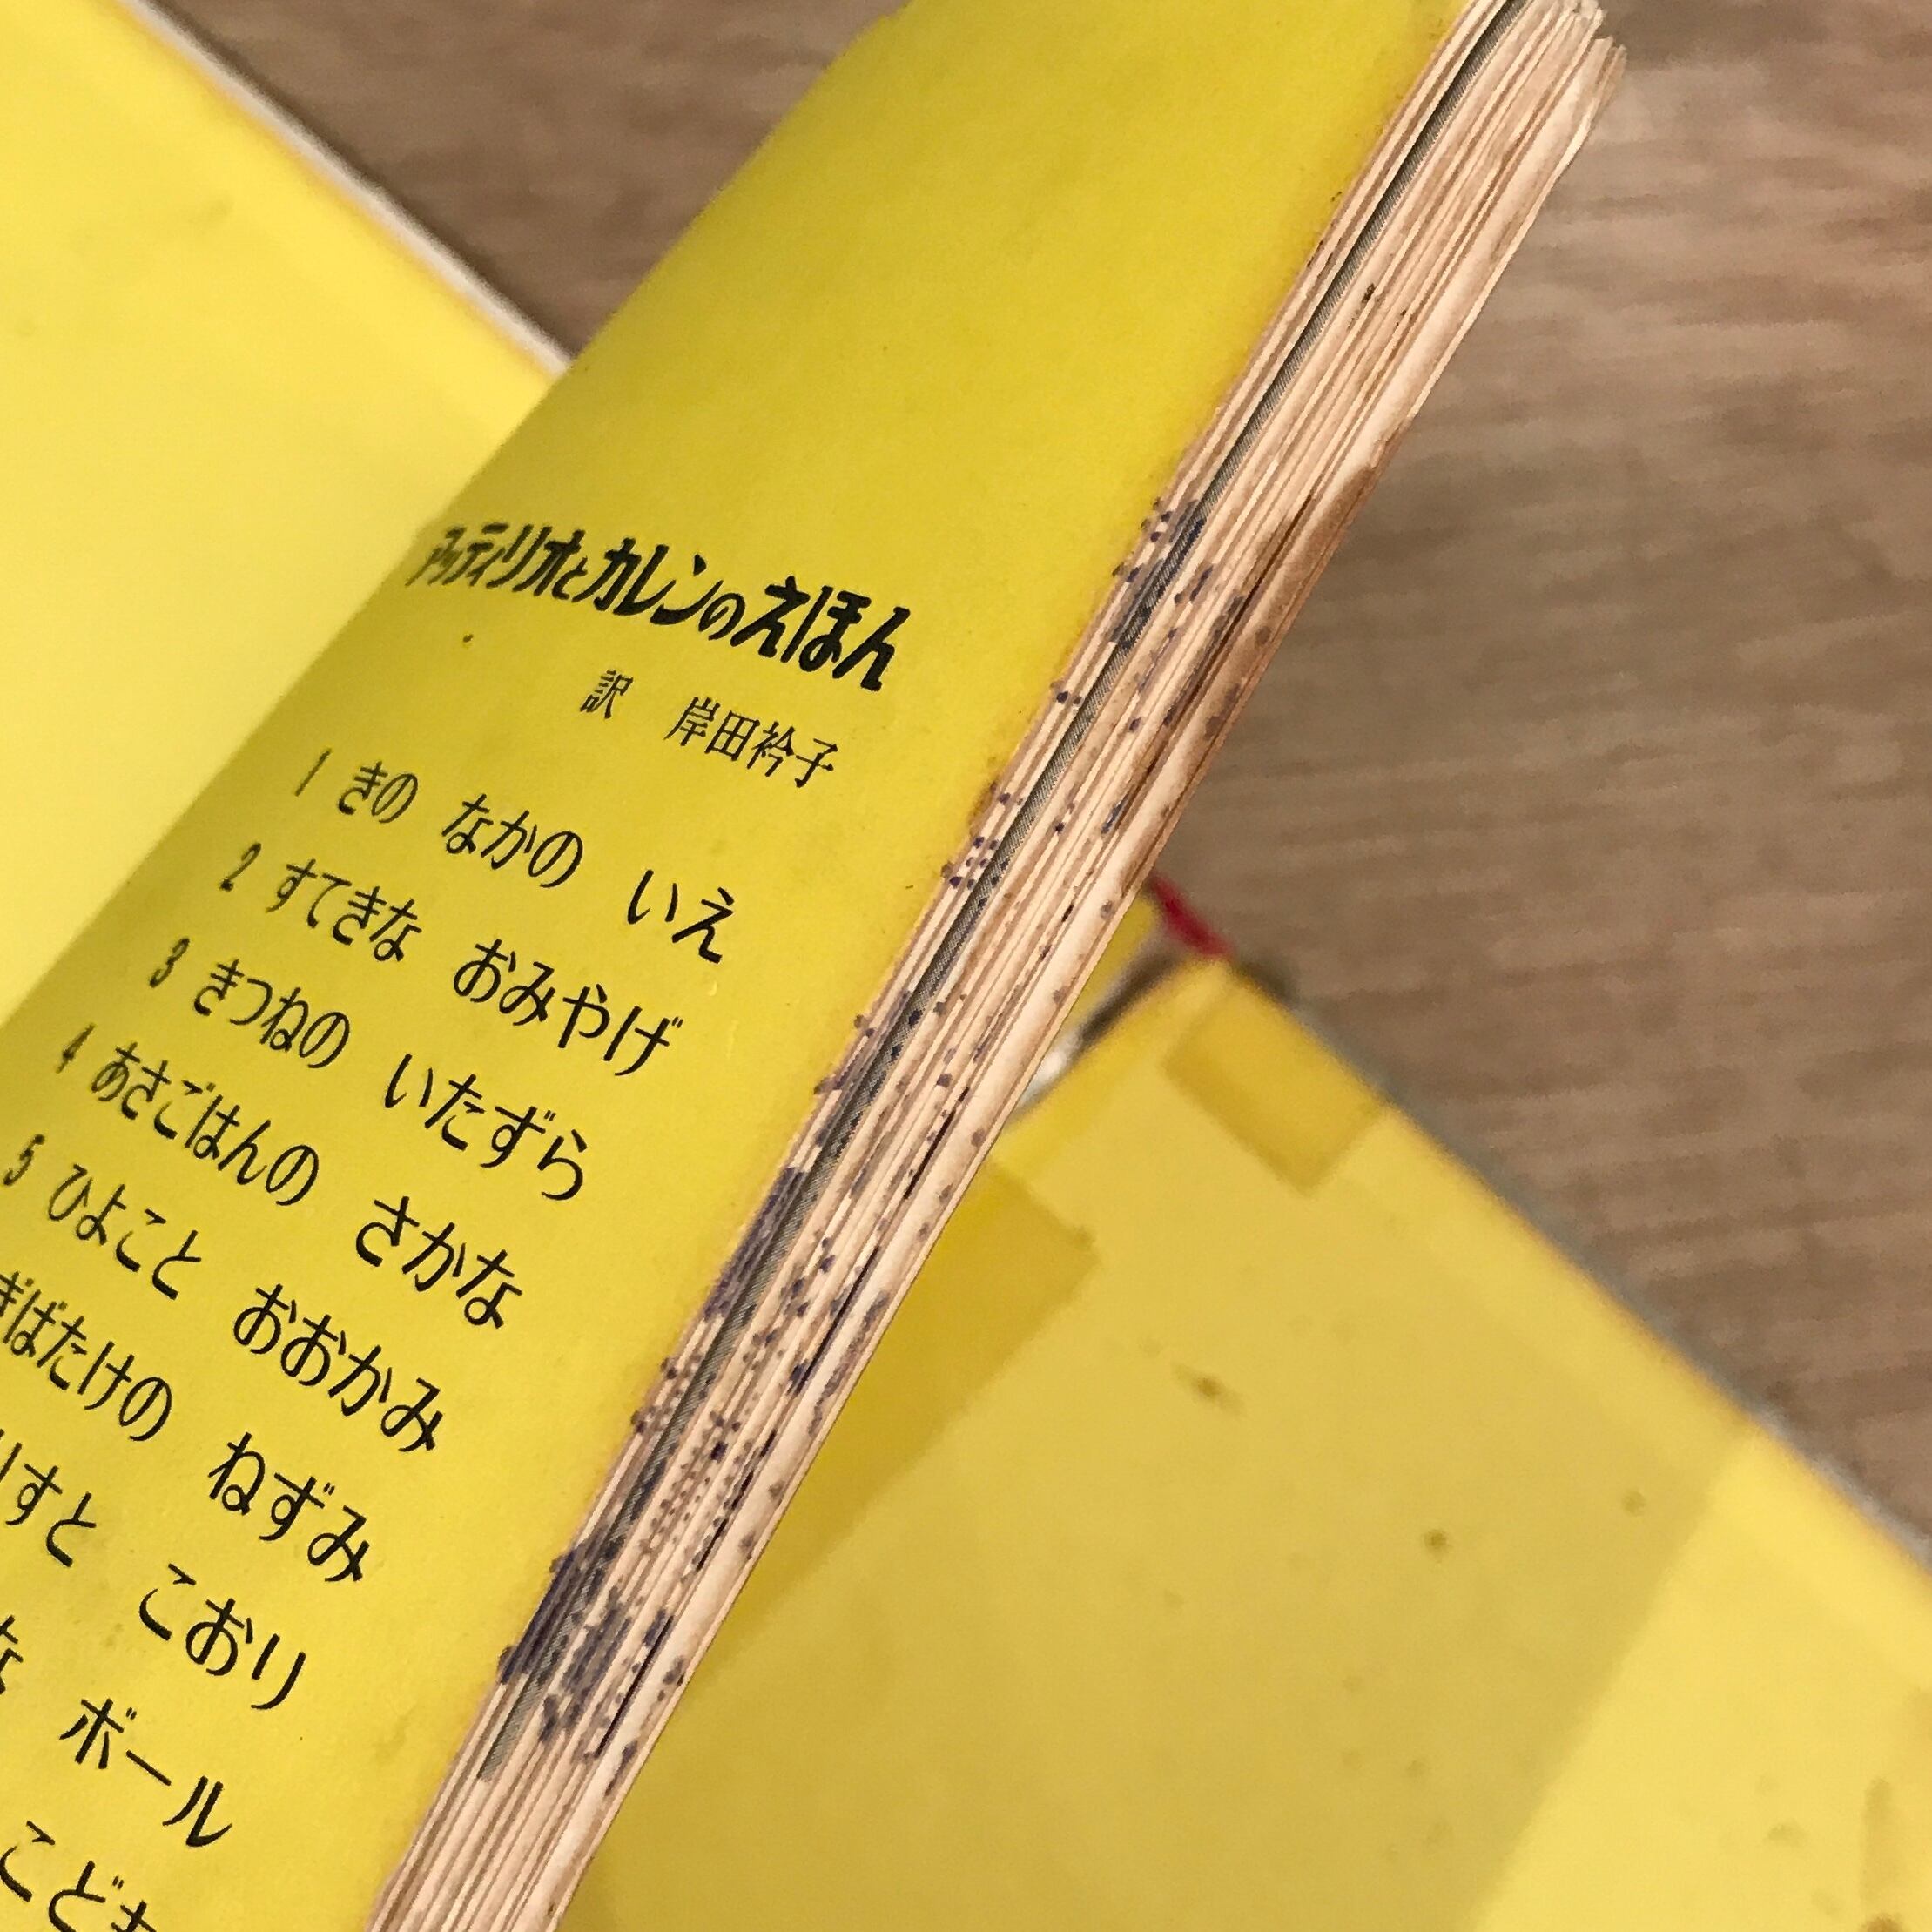 アッティリオとカレンのえほん
訳 岸田衿子
1 きの なかの いえ
2 すてきな おみやげ
3 きつねの いたずら
4 あさごはんの さかな
5 ひよこと おおかみ
ぎばたけの ねずみ
りすと こおり
な ボール
こども